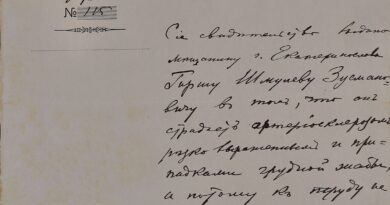 № 115
Сіе свидѣтельство выдано
мѣщанину г. Екатеринослава
Гиршу Шмулеву Зусмано-
вичу в томъ, что онъ
страдаетъ артеріосклерозомъ
рѣзко выраженнымъ и при-
падками грудной жабы,
а потому къ труду не